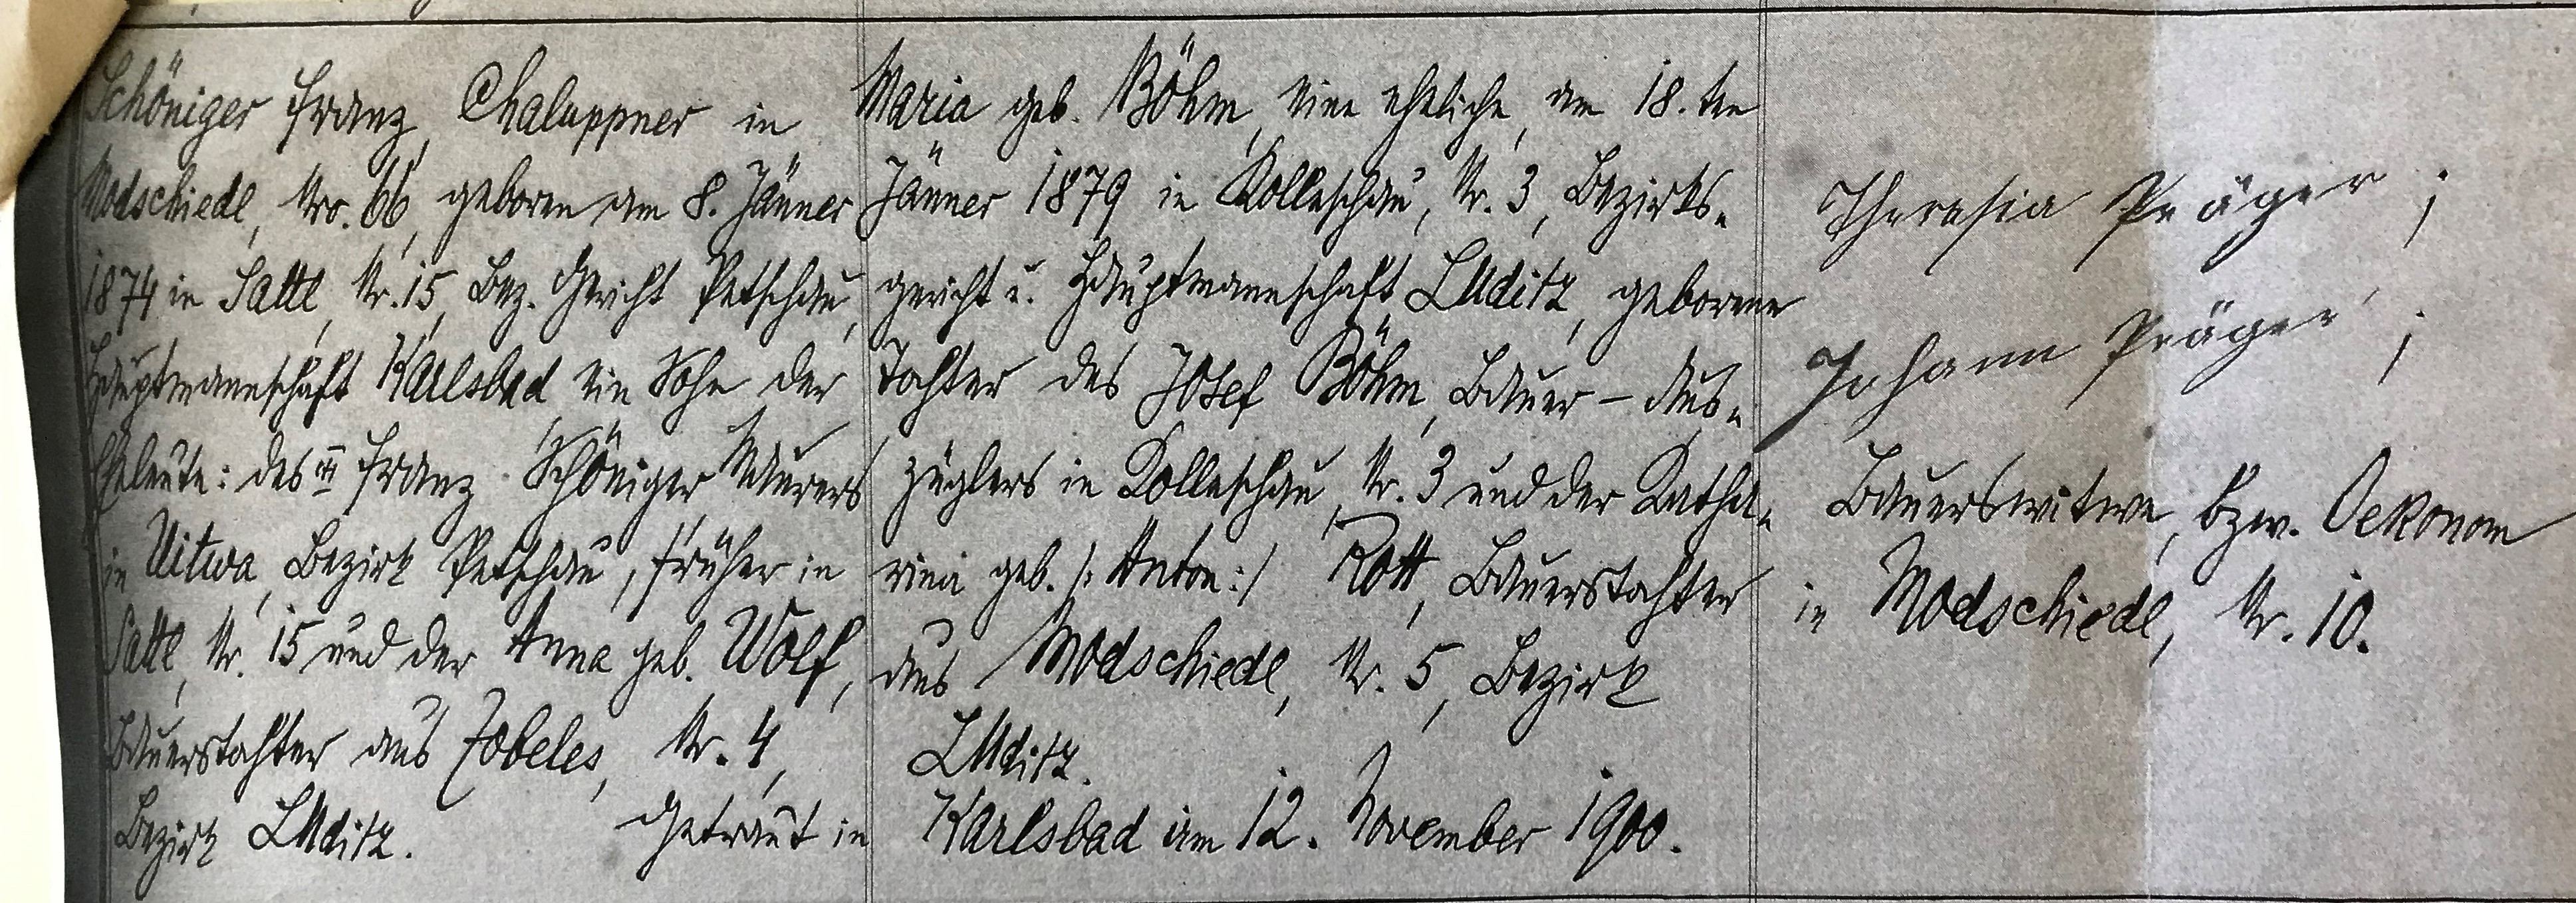 Schöniger Franz, Chaluppner in
Modschiedl, Nro. 66, geboren am 8. Jänner
1874 in Sattl, Nr. 15, Bez. Gericht Petschau,
Hauptmannschaft Karlsbad, ein Sohn der
Eheleute: des Franz Schöniger, Maurers
in Uitwa, Bezirk Petschau, früher in
Sattl, Nr. 15 und der Anna geb. Wolf,
Bauerstochter aus Zobeles, Nr. 4,
Bezirk Luditz. Getraut in
Maria geb. Böhm, eine eheliche, am 18. ten
Jänner 1879 in Kolleschau, Nr. 3, Bezirks-
gericht u. Hauptmannschaft Luditz, geborene
Tochter des Josef Böhm, Bauer – Aus-
züglers in Kolleschau, Nr. 3 und der Katha-
rina geb. /: Anton :/ Rott, Bauerstochter
aus Modschiedl, Nr. 5, Bezirk
Luditz.
Karlsbad am 12. November 1900.
Theresia Präger ;
Johann Präger ;
Bauerswitwe, bzw. Oekonom
in Modschiedl, Nr. 10.